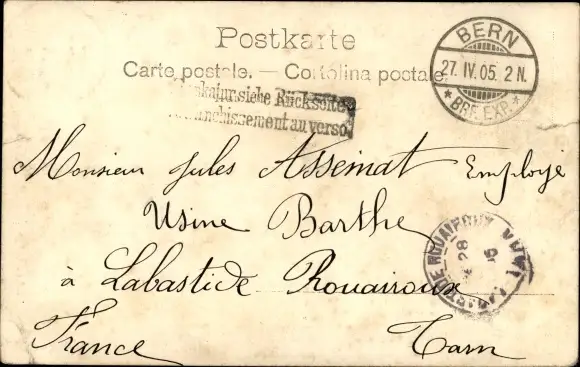 Postkarte
Carte postale. — Cartolina postale.
BERN
27. IV. 05. 2 N.
* BRF. EXP. *
siehe Rückseite
au verso
Monsieur Jules Assémat Employé
Usine Barthe
à Labastide Rouairoux
France Tarn
ROUAIROUX
28